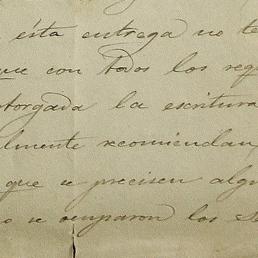 ésta entrega no te
que con todos los req
otorgada la escritura
lmente recomiendan
que se precisen algu
o se ocuparon los Se